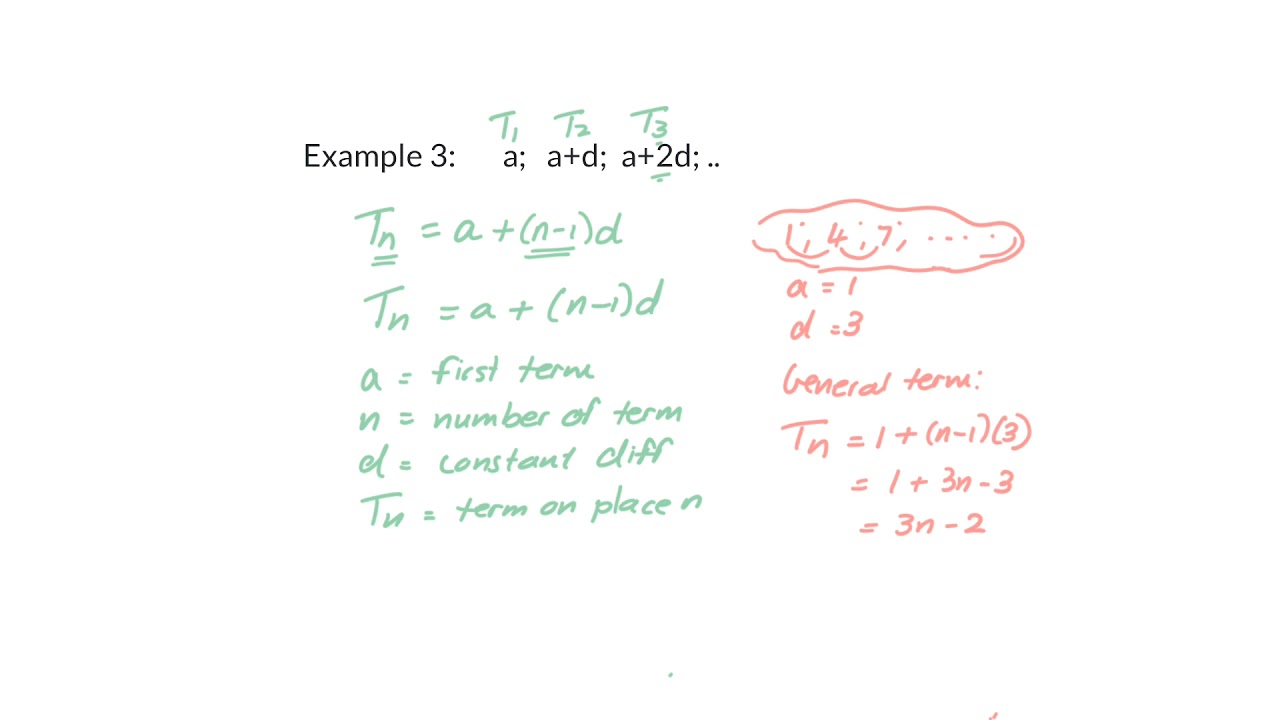 T1 T2 T3
Example 3: a; a+d; a+2d; ..
Tn = a + (n-1)d
Tn = a + (n-1)d
a = first term
n = number of term
d = constant diff
Tn = term on place n
1; 4; 7; ....
a = 1
d = 3
General term:
Tn = 1 + (n-1)(3)
= 1 + 3n - 3
= 3n - 2